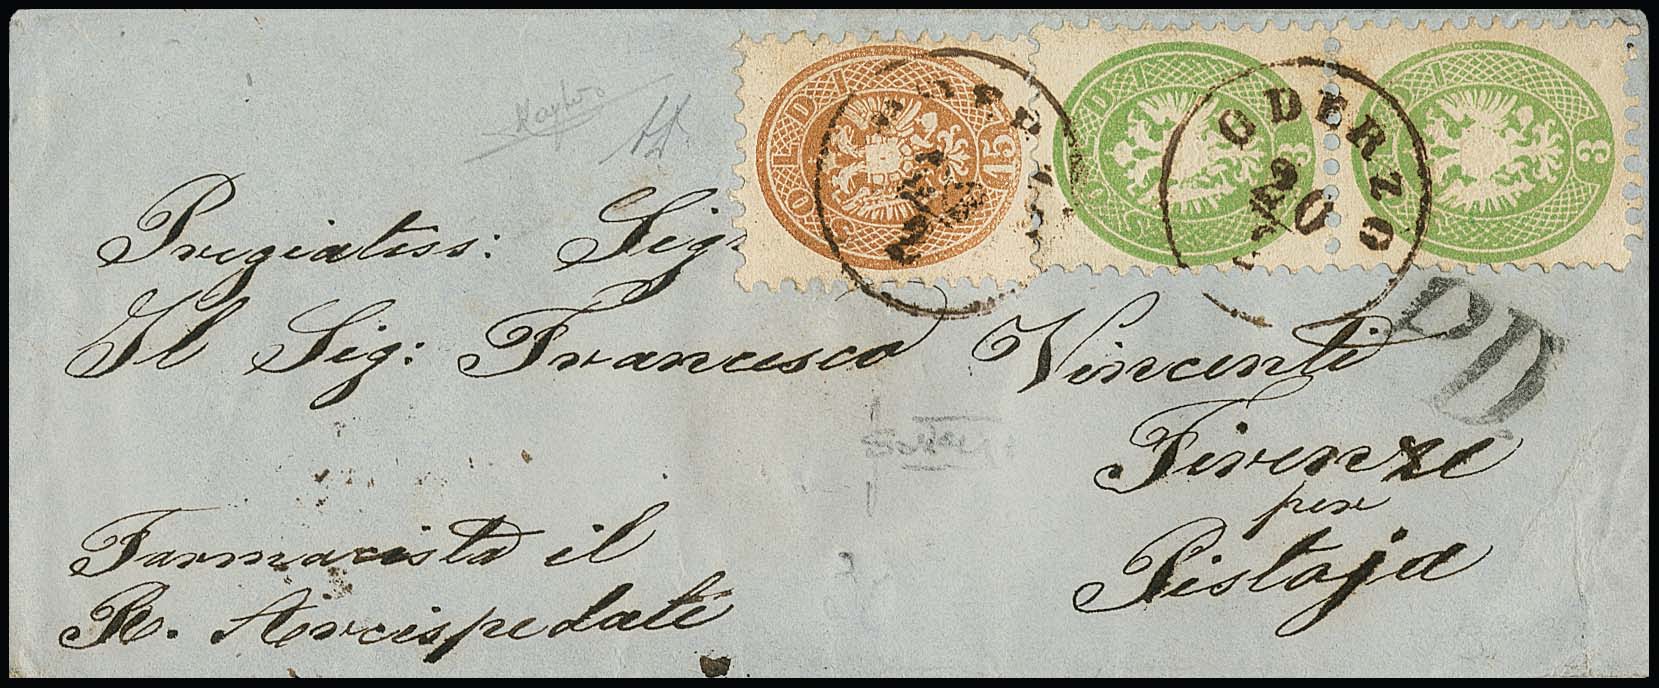 15 SOLDI
3 SOLDI
3 SOLDI
ODERZO
20
PD
Pregiatiss: Sigr
Il Sig: Francesco Vincenti
Firenze
per
Pistoja
Farmacista il
R. Arcispedale